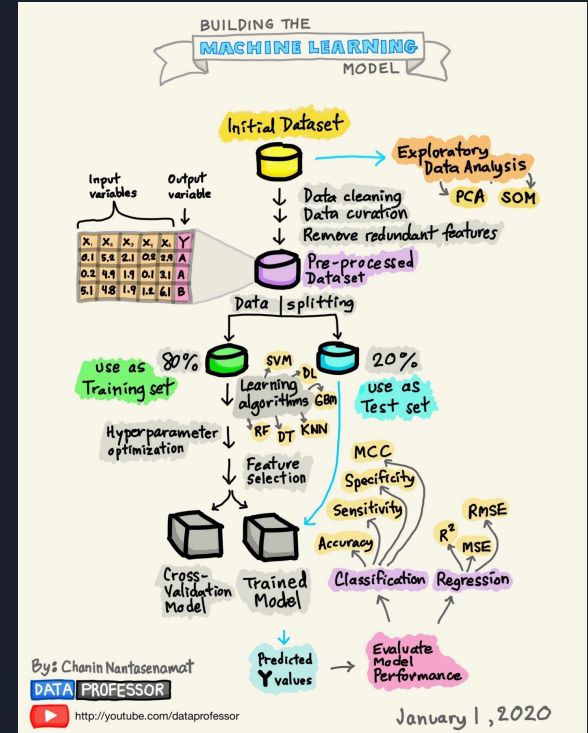 BUILDING THE
MACHINE LEARNING
MODEL
Initial Dataset
Exploratory
Data Analysis
PCA SOM
Data cleaning
Data curation
Remove redundant features
Input
variables
Output
variable
X₁ X₂ X₃ X₄ X₅ Y
0.1 5.2 2.1 0.2 2.9 A
0.2 4.9 1.9 0.1 3.1 A
5.1 4.8 1.9 1.2 6.1 B
Pre-processed
Dataset
Data splitting
80%
use as
Training set
20%
use as
Test set
SVM
DL
Learning
algorithms
GBM
RF DT KNN
Hyperparameter
optimization
Feature
selection
Cross-
Validation
Model
Trained
Model
MCC
Specificity
Sensitivity
Accuracy
Classification
RMSE
R²
MSE
Regression
Predicted
Y values
Evaluate
Model
Performance
By: Chanin Nantasenamat
DATA PROFESSOR
http://youtube.com/dataprofessor
January 1, 2020